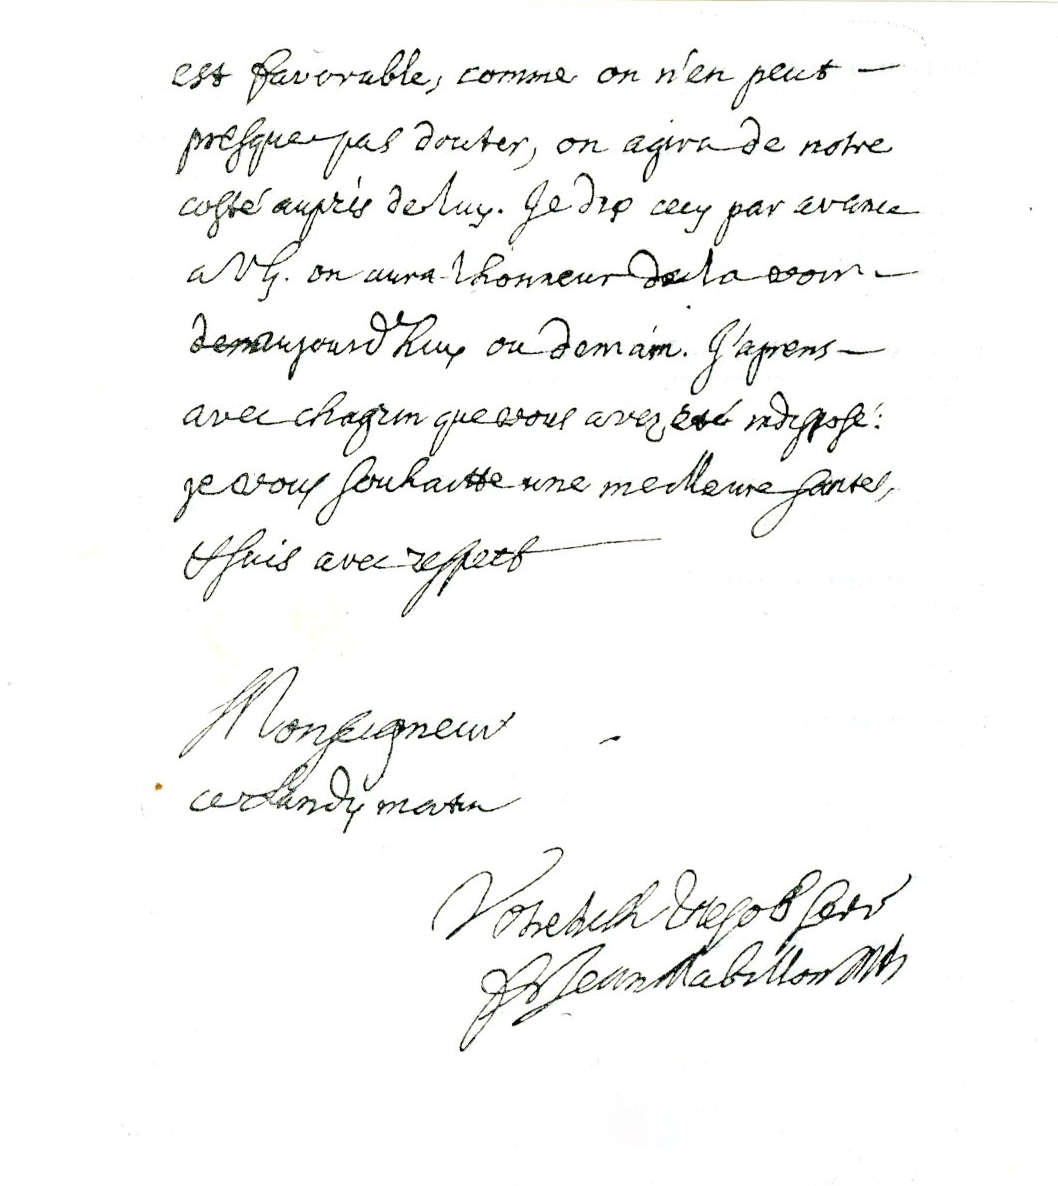 est favorable, comme on n'en peut —
presque pas douter, on agira de notre
costé auprés de luy. Je dis cecy par avance
a VG. on aura l'honneur de la voir —
aujourd'huy ou demain. J'aprens —
avec chagrin que vous avez esté indisposé:
je vous souhaitte une meilleure santé,
& suis avec respect
Monseigneur
ce Lundy matin
Votre tresobt serv
fr Jean Mabillon